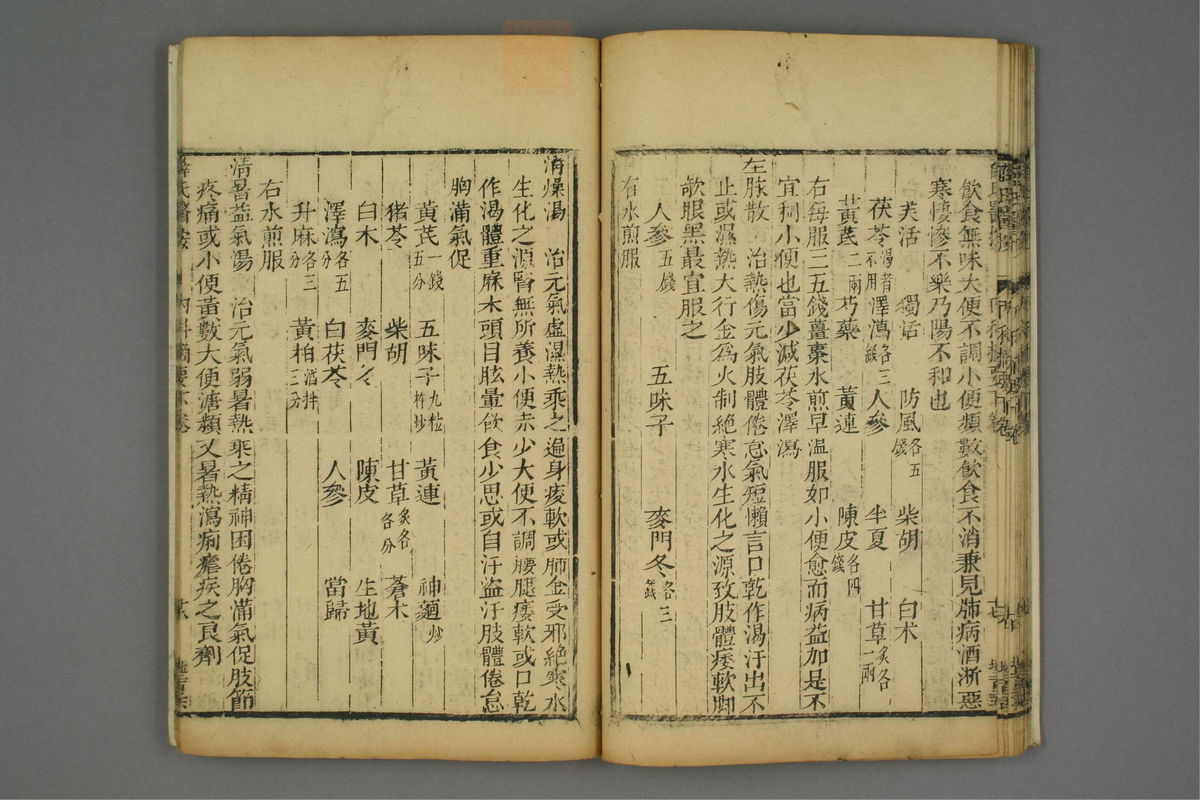 飲食無味大便不調小便頻數飲食不消兼見肺病洒淅惡
寒悽慘不樂乃陽不和也
羌活 獨活 防風各五錢 柴胡 白朮
茯苓渴者不用 澤瀉各三錢 人參 半夏 甘草炙各一兩
黃芪二兩 芍藥 黃連 陳皮各四錢
右每服三五錢薑棗水煎早溫服如小便愈而病益加是不
宜利小便也當少減茯苓澤瀉
生脉散 治熱傷元氣肢體倦怠氣短懶言口乾作渴汗出不
止或濕熱大行金爲火制絶寒水生化之源致肢體痿軟脚
欹眼黑最宜服之
人參五錢 五味子 麥門冬各三錢
右水煎服
清燥湯 治元氣虛濕熱乘之遍身痠軟或肺金受邪絶寒水
生化之源腎無所養小便赤少大便不調腰腿痿軟或口乾
作渴體重麻木頭目眩暈飲食少思或自汗盜汗肢體倦怠
胸滿氣促
黃芪一錢五分 五味子九粒杵炒 黃連 神麯炒
猪苓 柴胡 甘草炙各 各分 蒼木
白木 麥門冬 陳皮 生地黃
澤瀉各五分 白茯苓 人參 當歸
升麻各三分 黃柏酒拌三分
右水煎服
清暑益氣湯 治元氣弱暑熱乘之精神困倦胸滿氣促肢節
疼痛或小便黃數大便溏頻又暑熱瀉痢瘧疾之良劑
薛氏醫案 內科摘要下卷